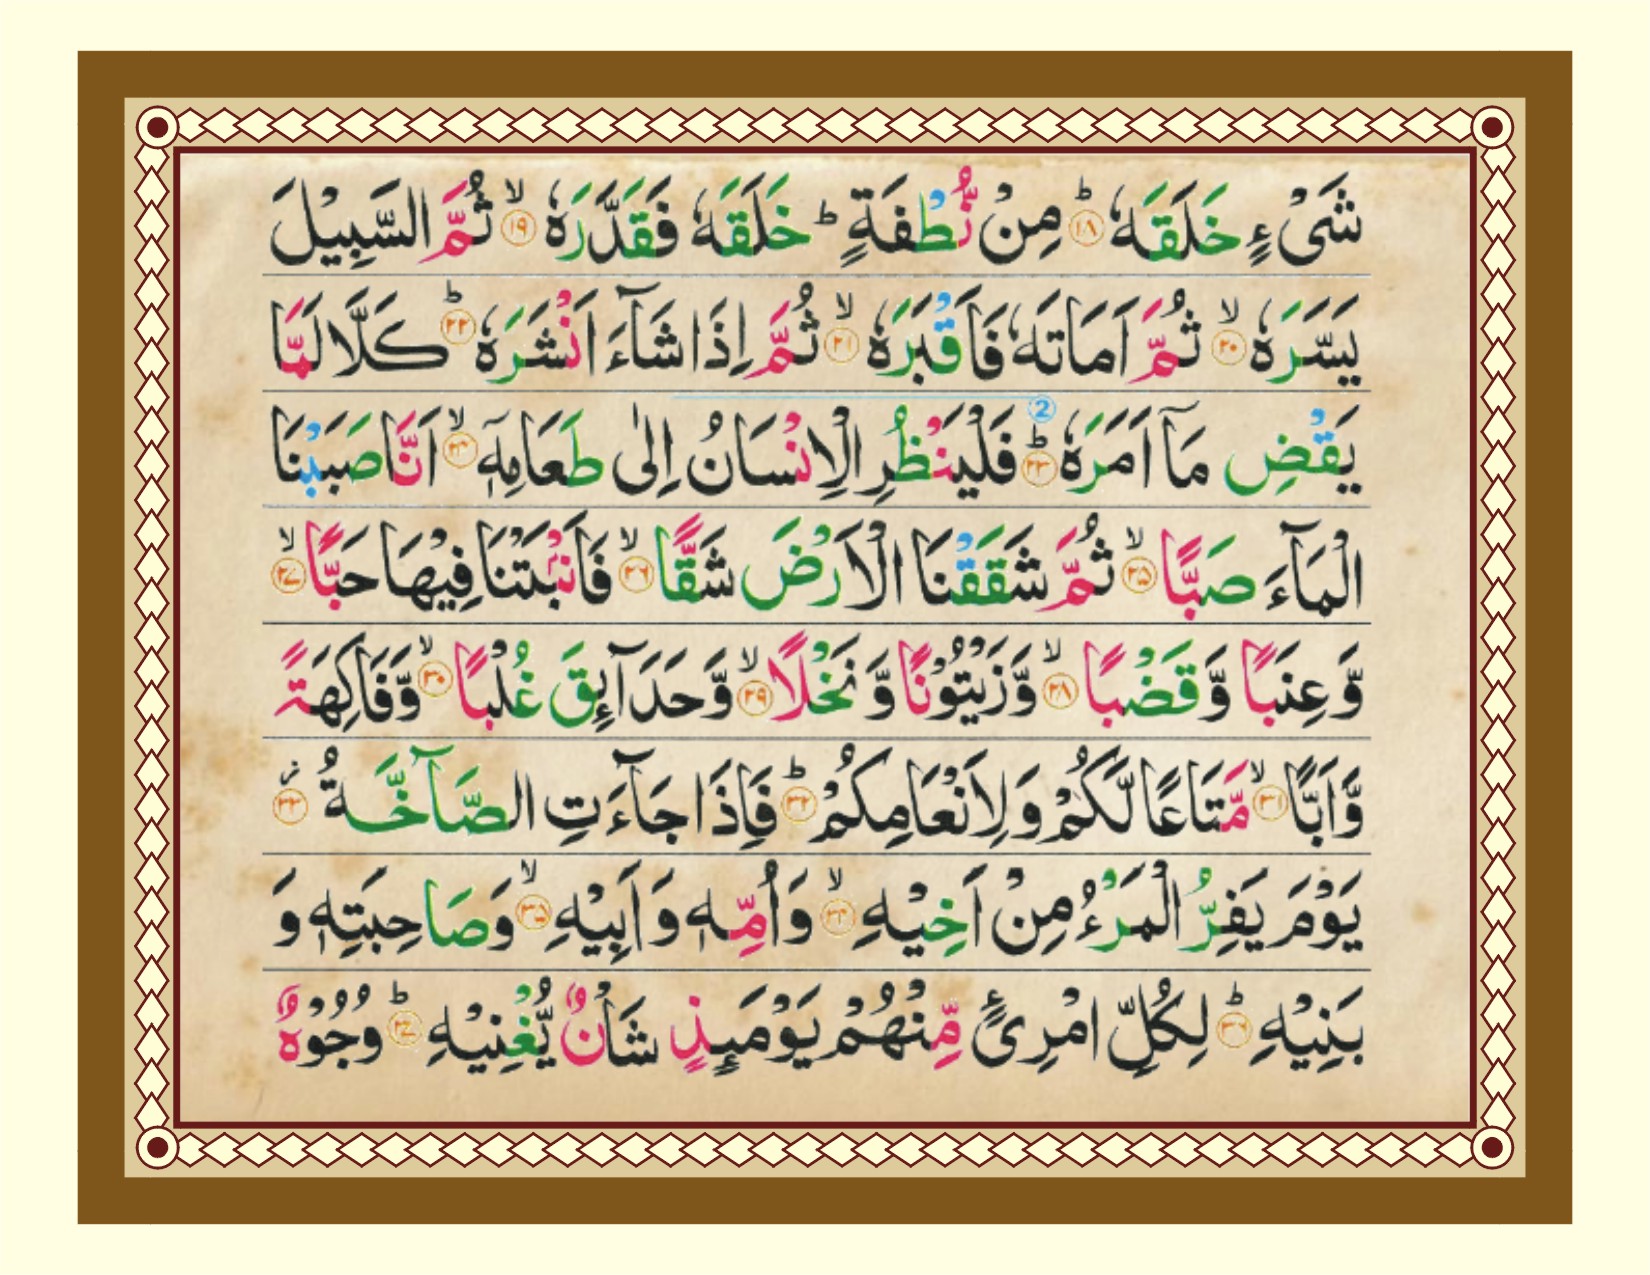 شَیْءٍ خَلَقَهٗ ؕ﴿۱۸﴾ مِنْ نُّطْفَةٍ ؕ خَلَقَهٗ فَقَدَّرَهٗ ۙ﴿۱۹﴾ ثُمَّ السَّبِیْلَ
یَسَّرَهٗ ۙ﴿۲۰﴾ ثُمَّ اَمَاتَهٗ فَاَقْبَرَهٗ ۙ﴿۲۱﴾ ثُمَّ اِذَا شَآءَ اَنْشَرَهٗ ؕ﴿۲۲﴾ كَلَّا لَمَّا
2
یَقْضِ مَاۤ اَمَرَهٗ ؕ﴿۲۳﴾ فَلْیَنْظُرِ الْاِنْسَانُ اِلٰی طَعَامِهٖۤ ۙ﴿۲۴﴾ اَنَّا صَبَبْنَا
الْمَآءَ صَبًّا ۙ﴿۲۵﴾ ثُمَّ شَقَقْنَا الْاَرْضَ شَقًّا ۙ﴿۲۶﴾ فَاَنْۢبَتْنَا فِیْهَا حَبًّا ۙ﴿۲۷﴾
وَّ عِنَبًا وَّ قَضْبًا ۙ﴿۲۸﴾ وَّ زَیْتُوْنًا وَّ نَخْلًا ۙ﴿۲۹﴾ وَّ حَدَآئِقَ غُلْبًا ۙ﴿۳۰﴾ وَّ فَاكِهَةً
وَّ اَبًّا ۙ﴿۳۱﴾ مَّتَاعًا لَّكُمْ وَ لِاَنْعَامِكُمْ ؕ﴿۳۲﴾ فَاِذَا جَآءَتِ الصَّآخَّةُ ؗ﴿۳۳﴾
یَوْمَ یَفِرُّ الْمَرْءُ مِنْ اَخِیْهِ ۙ﴿۳۴﴾ وَ اُمِّهٖ وَ اَبِیْهِ ۙ﴿۳۵﴾ وَ صَاحِبَتِهٖ وَ
بَنِیْهِ ؕ﴿۳۶﴾ لِكُلِّ امْرِئٍ مِّنْهُمْ یَوْمَئِذٍ شَاْنٌ یُّغْنِیْهِ ؕ﴿۳۷﴾ وُجُوْهٌ